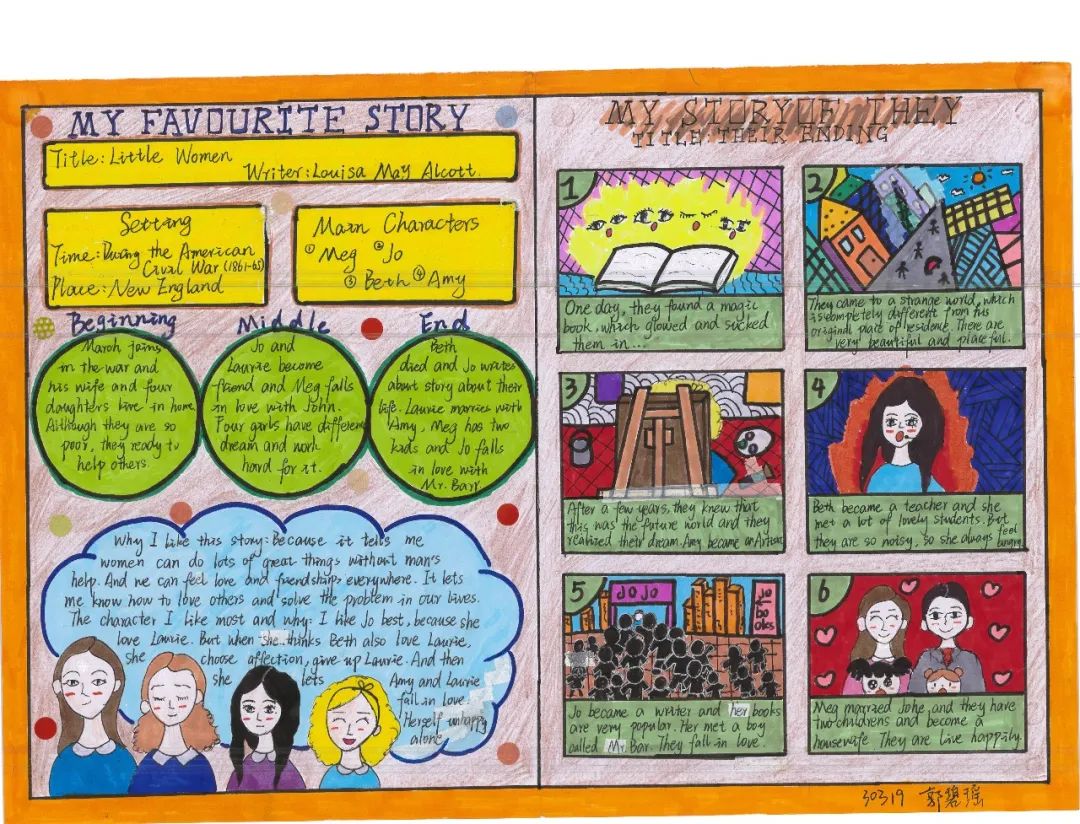 MY FAVOURITE STORY
Title: Little Women
Writer: Louisa May Alcott.
Setting
Time: During the American
Civil War (1861-65)
Place: New England
Main Characters
① Meg ② Jo
③ Beth ④ Amy
Beginning
March joins
in the war and
his wife and four
daughters live in home.
Although they are so
poor, they ready to
help others.
Middle
Jo and
Laurie become
friend and Meg falls
in love with John.
Four girls have different
dream and work
hard for it.
End
Beth
died and Jo writes
about story about their
life. Laurie marries with
Amy. Meg has two
kids and Jo falls
in love with
Mr. Barr.
Why I like this story: Because it tells me
women can do lots of great things without man's
help. And we can feel love and friendships everywhere. It lets
me know how to love others and solve the problem in our lives.
The character I like most and why: I like Jo best, because she
love Laurie. But when she thinks Beth also love Laurie,
she choose affection, give up Laurie. And then
she lets Amy and Laurie
fall in love.
Herself unhappy
alone.
MY STORY OF THEY
TITLE: THEIR ENDING
1
One day, they found a magic
book, which glowed and sucked
them in...
2
They came to a strange world, which
is completely different from his
original place of residence. There are
very beautiful and placeful.
3
After a few years, they knew that
this was the future world and they
realized their dream. Amy became an Artist.
4
Beth became a teacher and she
met a lot of lovely students. But
they are so noisy. So she always feel
hungry
5
JOJO
Jo
books
Jo became a writer and her books
are very popular. Her met a boy
called Mr. Bar. They fall in love.
6
Meg married John, and they have
two childrens and become a
housewife They are live happily.
30319 郭碧瑶